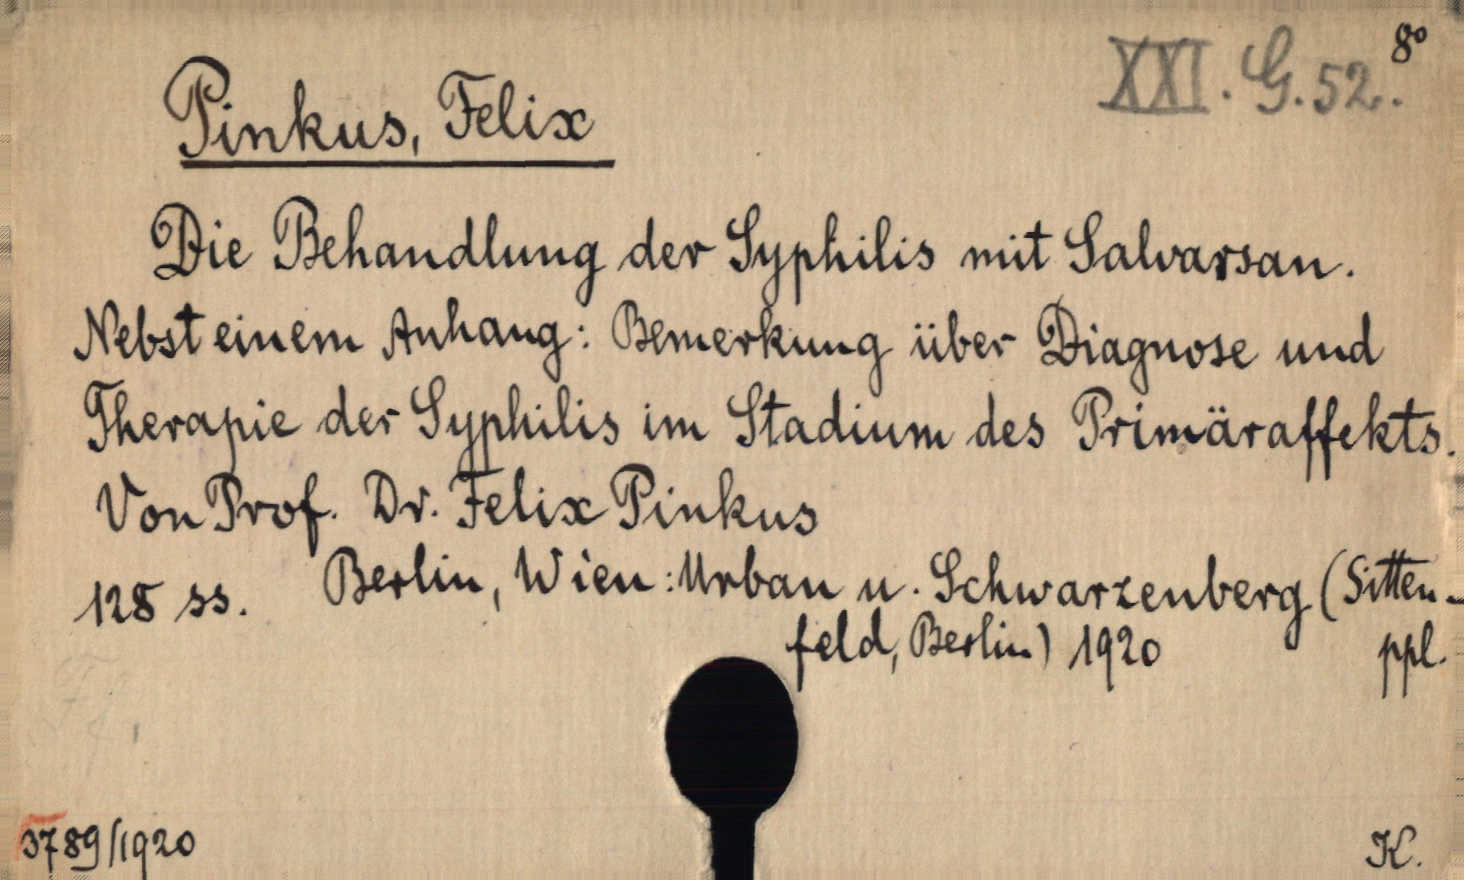 8°
XXI. G. 52.
Pinkus, Felix
Die Behandlung der Syphilis mit Salvarsan.
Nebst einem Anhang: Bemerkung über Diagnose und
Therapie der Syphilis im Stadium des Primäraffekts.
Von Prof. Dr. Felix Pinkus
128 ss. Berlin, Wien: Urban u. Schwarzenberg (Sitten-
feld, Berlin) 1920 ppl.
3789/1920
K.